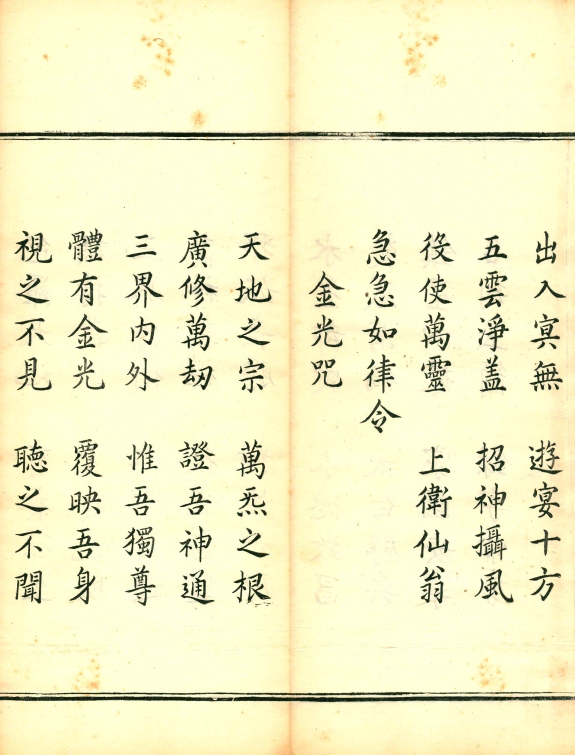 出入冥無　遊宴十方
五雲淨盖　招神攝風
役使萬靈　上衛仙翁
急急如律令
金光咒
天地之宗　萬炁之根
廣修萬劫　證吾神通
三界內外　惟吾獨尊
體有金光　覆映吾身
視之不見　聽之不聞